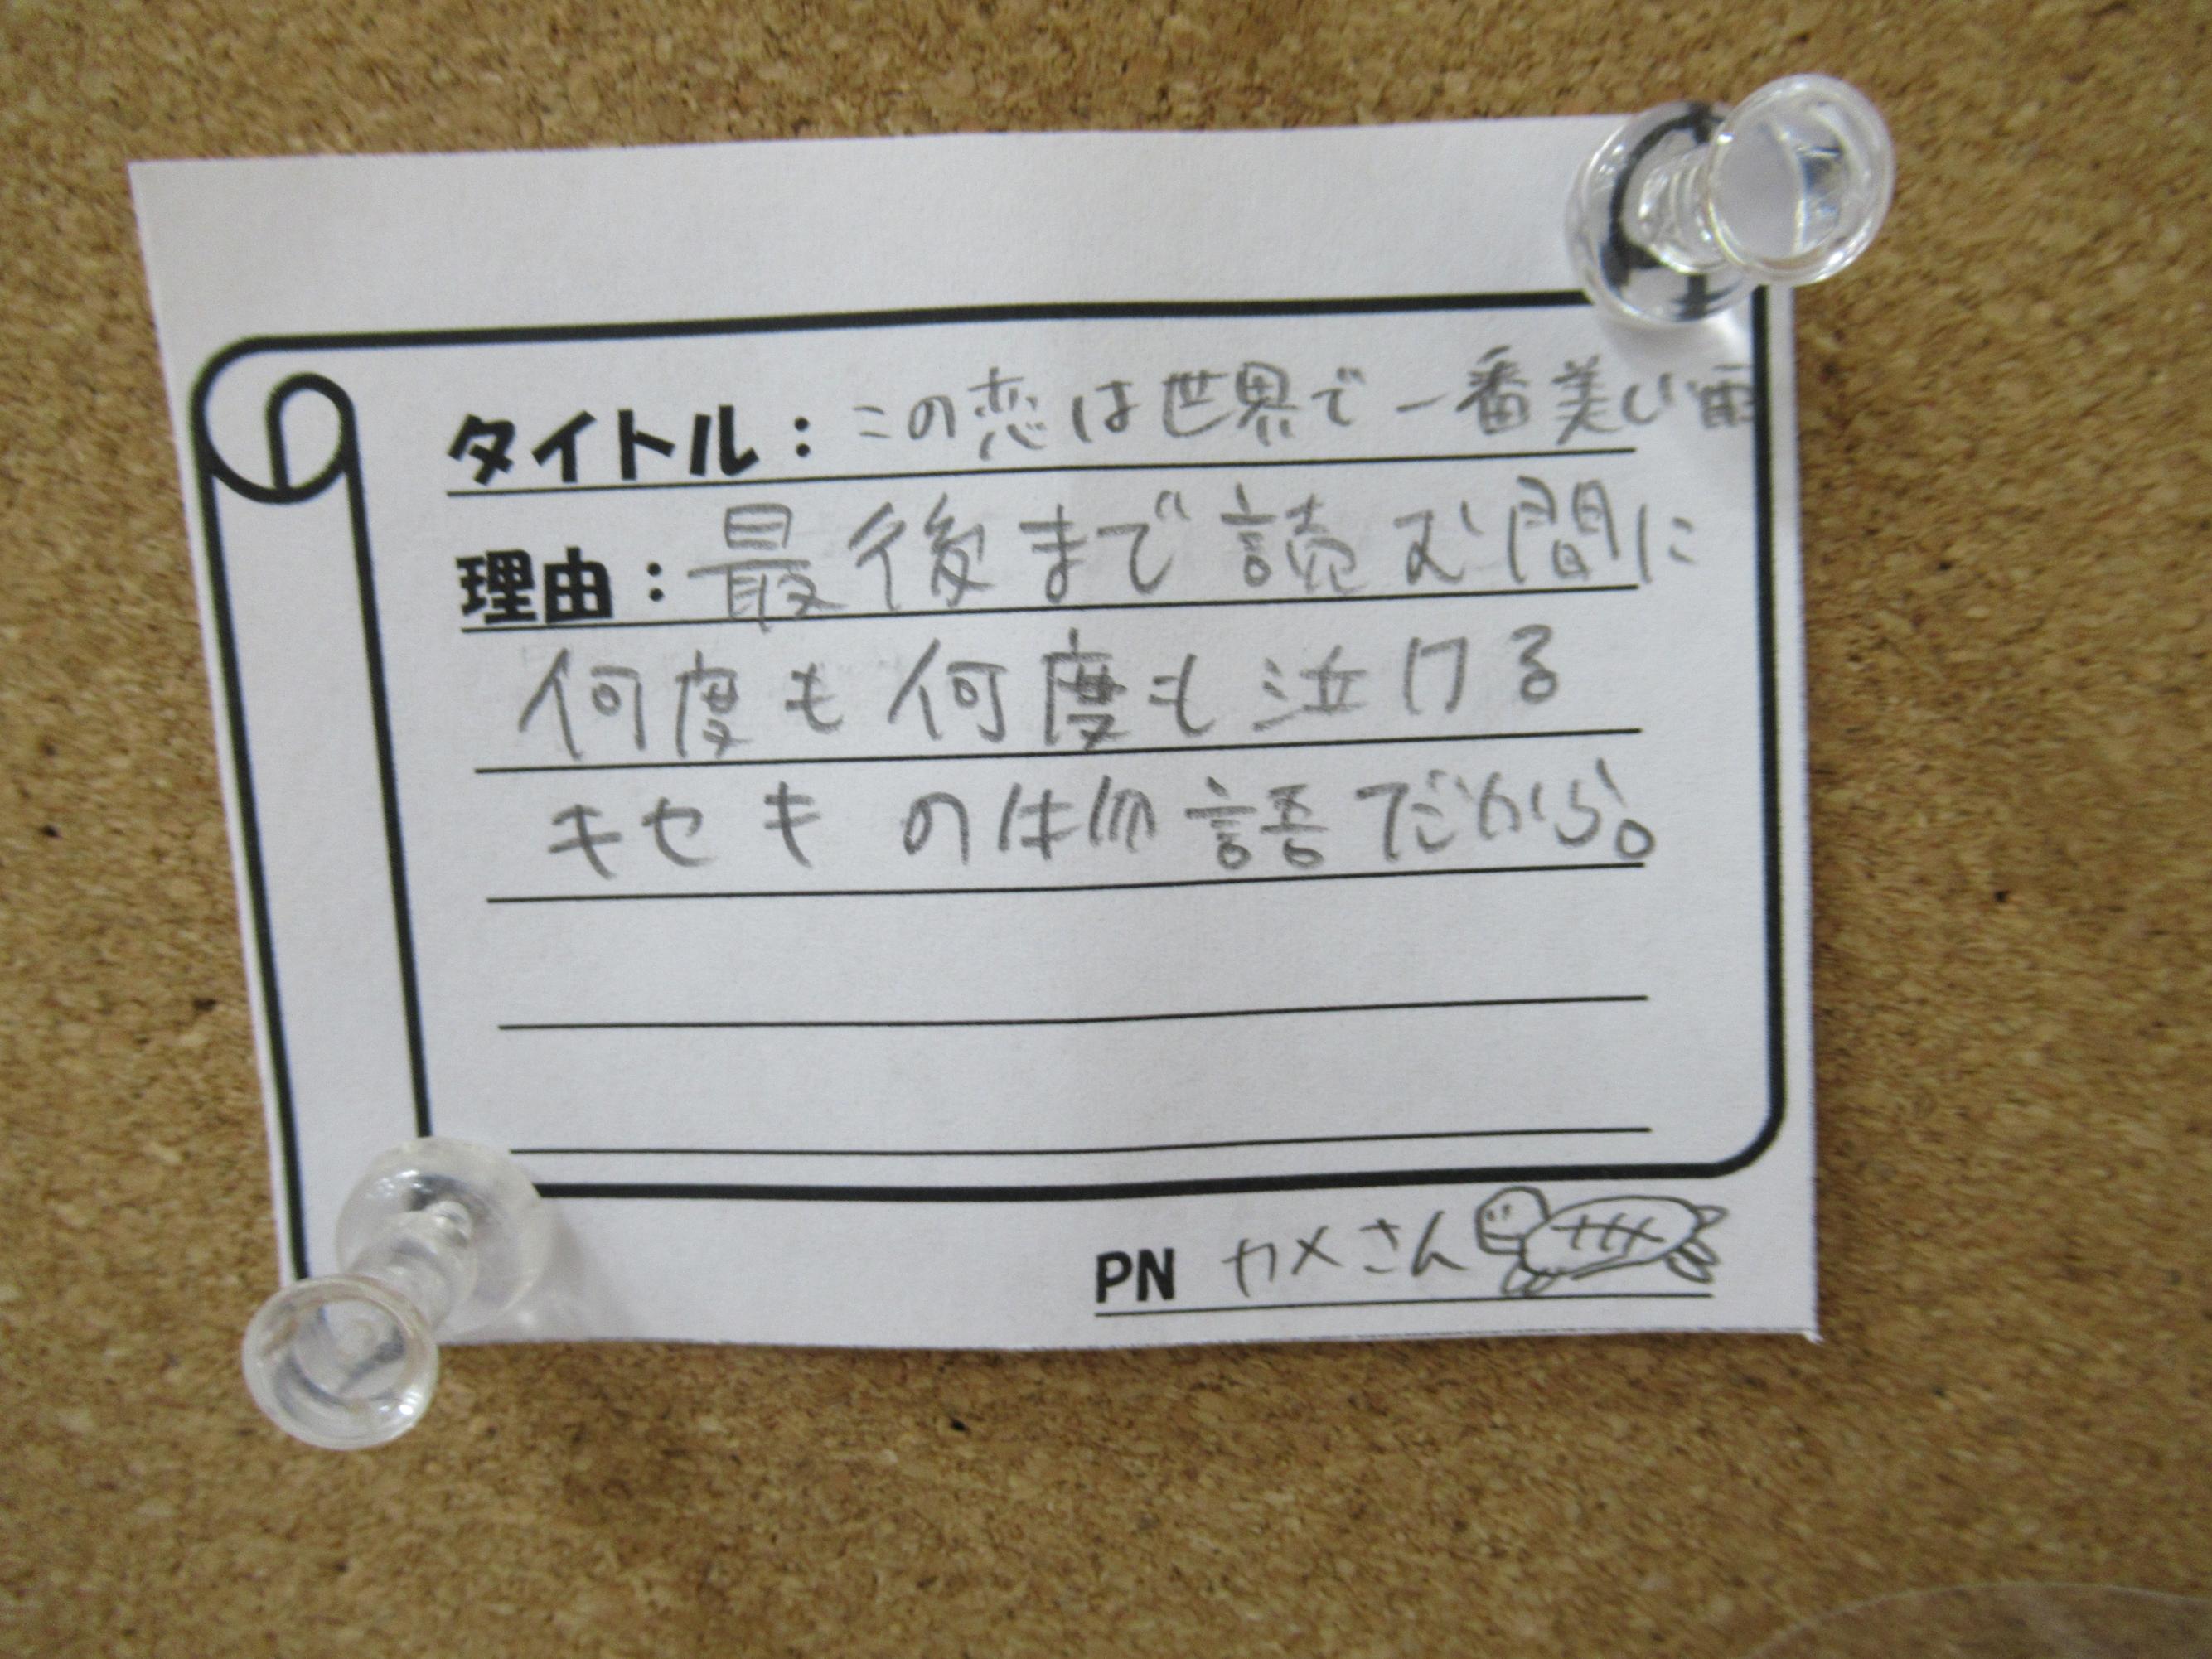 タイトル：この恋は世界で一番美しい雨
理由：最後まで読む間に
何度も何度も泣ける
キセキの物語だから。
PN カメさん